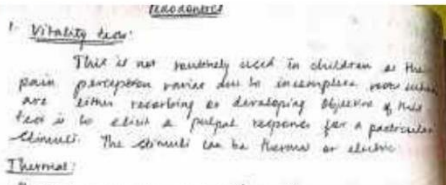 Pedodontics
1. Vitality tests:
This is not routinely used in children as the
pain perception varies due to incomplete roots which
are either resorbing or developing Objective of this
test is to elicit a pulpal response for a particular
stimuli. The stimuli can be thermal or electric
Thermal: